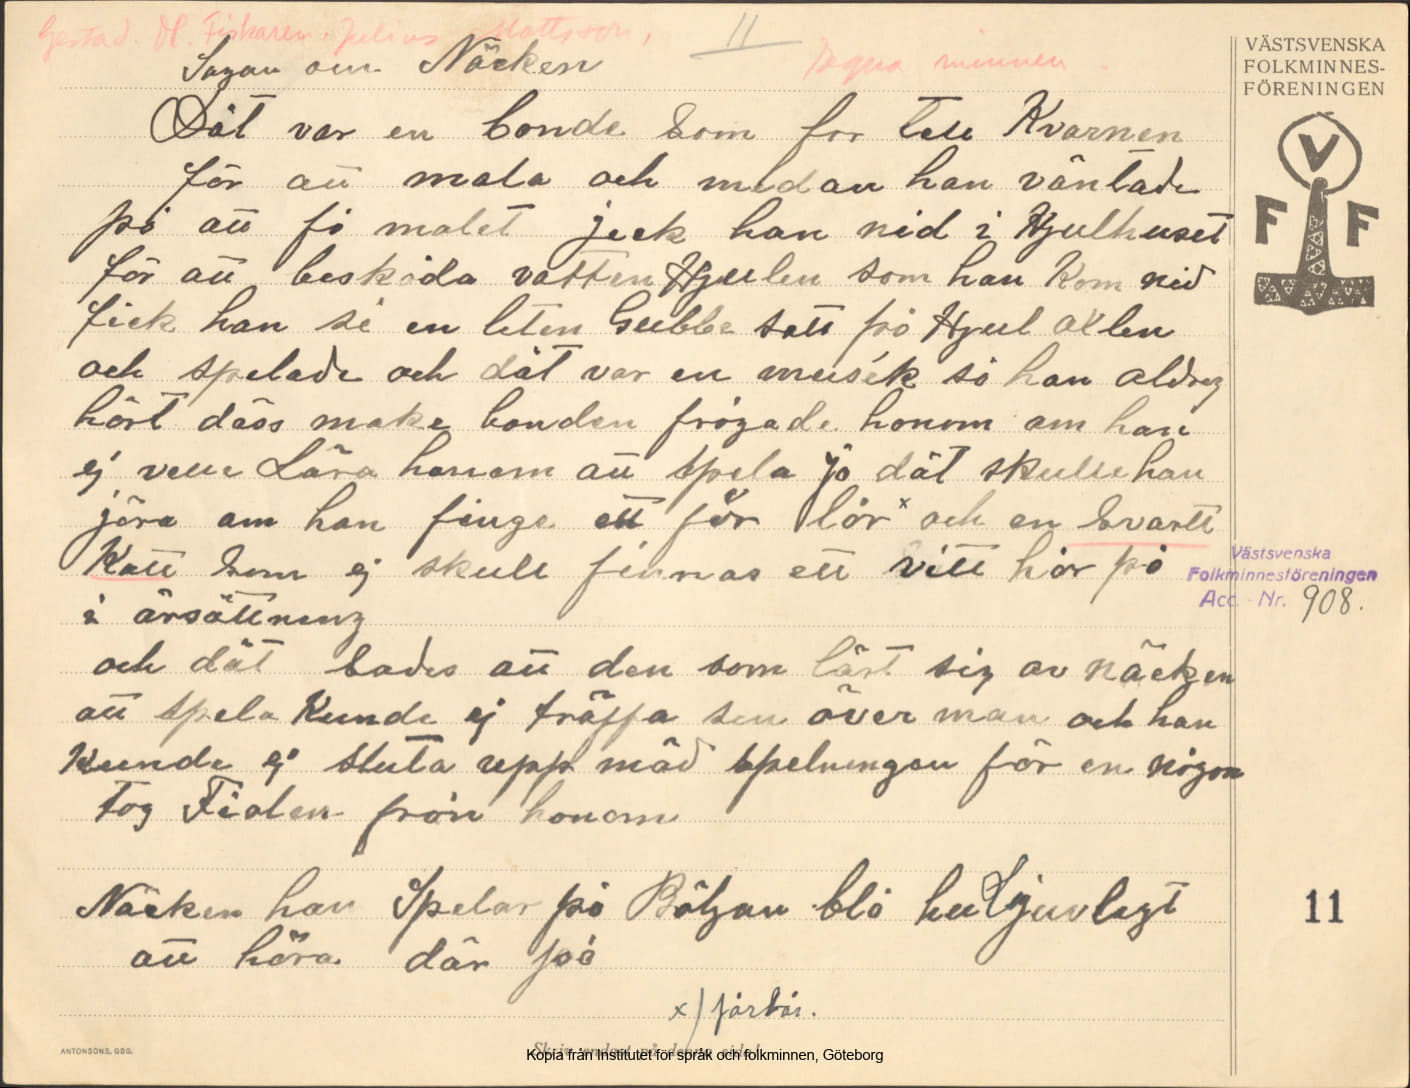 Gestad. Dl. Fiskaren Julius Mattsson,
11
Egna minnen
Sagan om Näcken
Dät var en bonde som for tell Kvarnen
för att mala och medan han väntade
på att få malet jeck han nid i Hjulhuset
för att beskåda vatten Hjulen som han Kom nid
fick han sé en leten Gubbe satt på Hjul axlen
och spelade och dät var en musék så han aldreg
hört däss make bonden frågade honom om han
ej velle Lära honom att spela jo dät skulle han
jöra om han finge ett får lår x och en Svartt
Katt som ej skull finnas ett vitt hår på
i ärsättneng
och dät sades att den som lärt sig av näcken
att spela Kunde ej träffa sin över man och han
Kunde ej sluta upp mäd spelningen för en någon
tog Fiolen från honom
Näcken han Spelar på Böljan blå hu Ljuvlegt
att höra där på
x) fårbår.
VÄSTSVENSKA
FOLKMINNES-
FÖRENINGEN
V
F F
Västsvenska
Folkminnesföreningen
Acc. Nr. 908.
11
ANTONSONS, GBG.
Skriv endast på denna sida!
Kopia från Institutet för språk och folkminnen, Göteborg